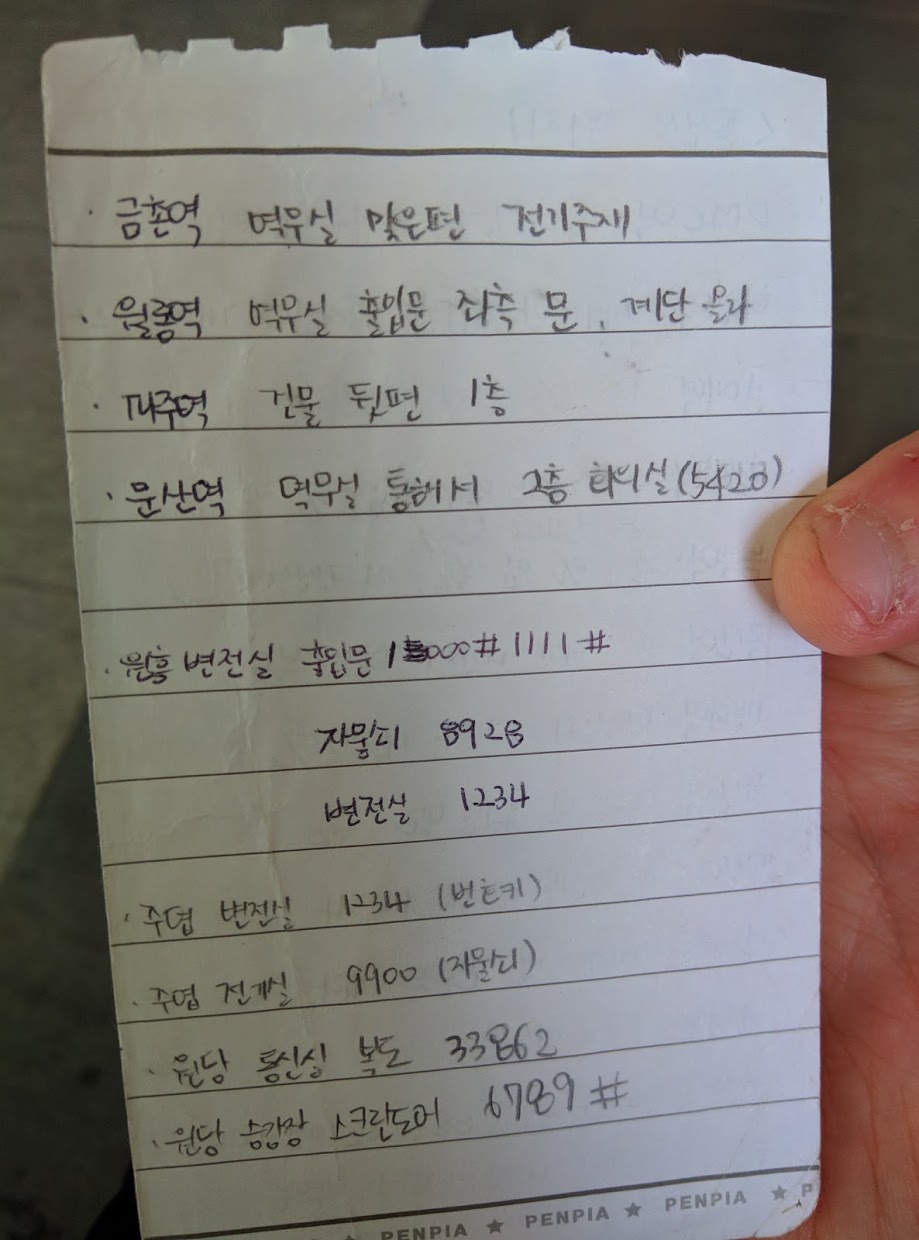 · 금촌역 역무실 맞은편 전기주재
· 월롱역 역무실 출입문 좌측 문, 계단 올라
· 파주역 건물 뒷편 1층
· 문산역 역무실 통해서 2층 (5420)
· 원흥 변전실 출입문 000#1111#
자물쇠 8928
변전실 1234
· 주엽 변전실 1234 (번호키)
· 주엽 전기실 9900 (자물쇠)
· 원당 통신실 복도 33862
· 원당 승강장 스크린도어 6789#
PENPIA ★ PENPIA ★ PENPIA ★ P